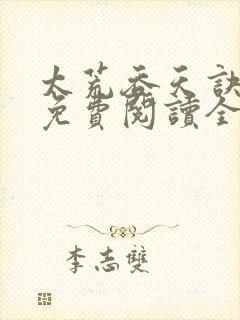 太荒吞天訣
免費閱讀全
李志雙